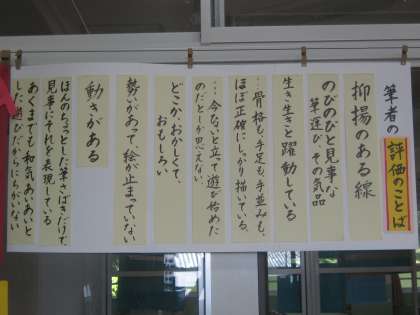 筆者の評価のことば
抑揚のある線
のびのびと見事な
筆運び、その気品
生き生きと躍動している
…骨格も、手足も、手並みも、
ほぼ正確にしっかり描いている。
…今ひょいと立って遊び始めた
のだとしか思えない
どこか、おかしくて、
おもしろい
勢いがあって、絵が止まっていない
動きがある
ほんのちょっとした筆さばきだけで
見事にそれを表現している
あくまでも和気あいあいと
した遊びだからにちがいない